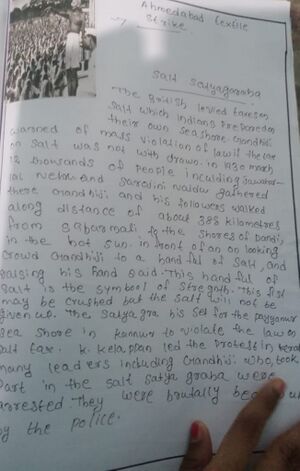 Ahmedabad textile
Strike.
Salt Satyagaraha
The British levied taxes on
Salt which Indians prepared on
their own Seashore. Gandhiji
warned of mass violation of law if the law
on salt was not with drawn. in 1930 march
12 thousands of people including Jawahar-
lal Nehru and Sarojini Naidu gathered
there Gandhiji and his followers walked
along distance of about 385 kilometres
from Sabarmati to the shores of Dandi
in the hot sun. in front of an on looking
Crowd Gandhiji to a handful of Salt, and
raising his hand said. This hand ful of
Salt is the symbol of Stregnth. This fist
may be crushed but the Salt will not be
given up. The Satya gra his Set for the payyanur
Sea shore in kannur to violate the law on
Salt tax. K. kelappan led the Protest in keral
many leaders including Gandhiji who took
Part in the salt satya graha were
arrested They were brutally
by the police.